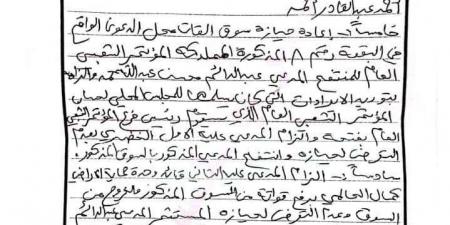 أحمد عبدالقادر
خامساً: إعادة حيازة سوق القات محل الدعوى الواقع
في البقعة رقم ٨ المذكورة المملوكة للمؤتمر الشعبي
العام للمنتفع المدعي عبدالدائم محسن عبدالله
بتوريد الإيرادات التي كان يسلمها للمجلس المحلي لحساب
المؤتمر الشعبي العام رئيس فرع المؤتمر الشعبي
العام والتزام المدعى عليه الأول بعدم
التعرض لحيازة وانتفاع المدعي المذكور بالسوق المذكور.
سادساً: الزام المدعى عليه الثاني قائد وحدة حماية الأراضي
كمال الحالمي برفع قواته من السوق المذكور والخروج من
السوق وعدم التعرض لحيازة المستثمر المدعي عبدالدائم